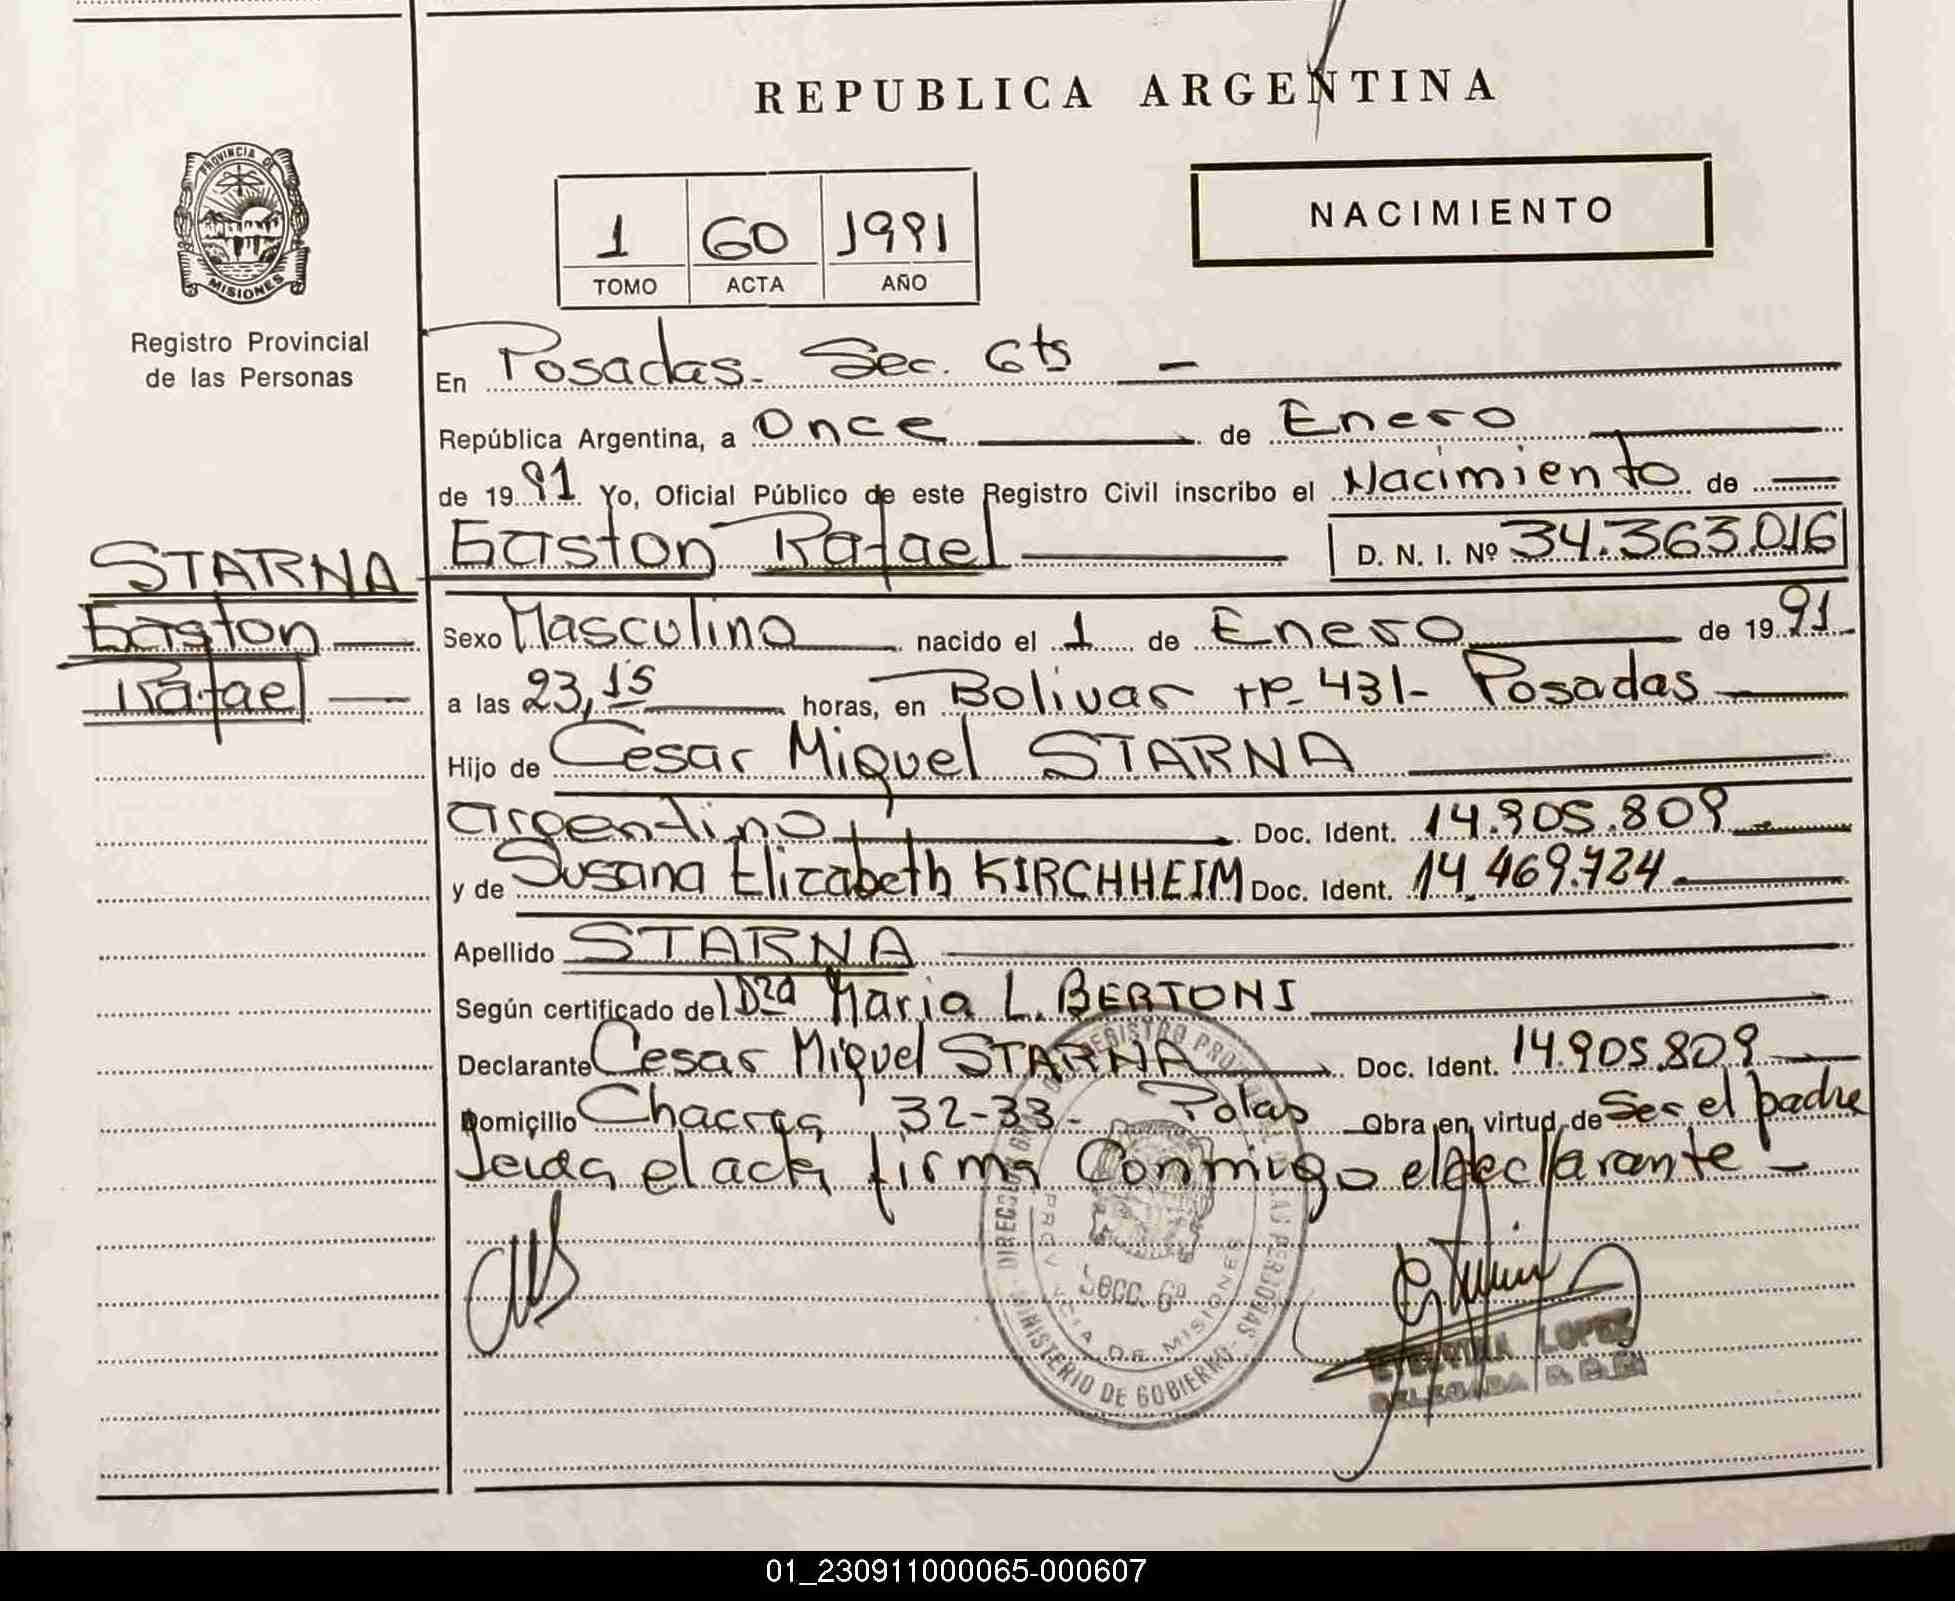 REPUBLICA ARGENTINA
PROVINCIA DE
MISIONES
Registro Provincial
de las Personas
1 60 1991
TOMO ACTA AÑO
NACIMIENTO
En Posadas. Sec. 6ta
República Argentina, a Once de Enero
de 1991 Yo, Oficial Público de este Registro Civil inscribo el Nacimiento de
STARNA
Gaston
Rafael
Gaston Rafael D. N. I. Nº 34.363.016
Sexo Masculino nacido el 1 de Enero de 1991
a las 23,15 horas, en Bolivar Nº 431- Posadas
Hijo de Cesar Miguel STARNA
argentino Doc. Ident. 14.905.809
y de Susana Elizabeth KIRCHHEIM Doc. Ident. 14.469.724
Apellido STARNA
Según certificado de Dra Maria L. BERTONI
Declarante Cesar Miguel STARNA Doc. Ident. 14.905.809
Domicilio Chacras 32-33- Obra en virtud de Ser el padre
Leida el acta firma Conmigo el declarante
Secc. 6a
PROVINCIA DE MISIONES
MINISTERIO DE GOBIERNO
LOPEZ
DELEGADA
01_230911000065-000607